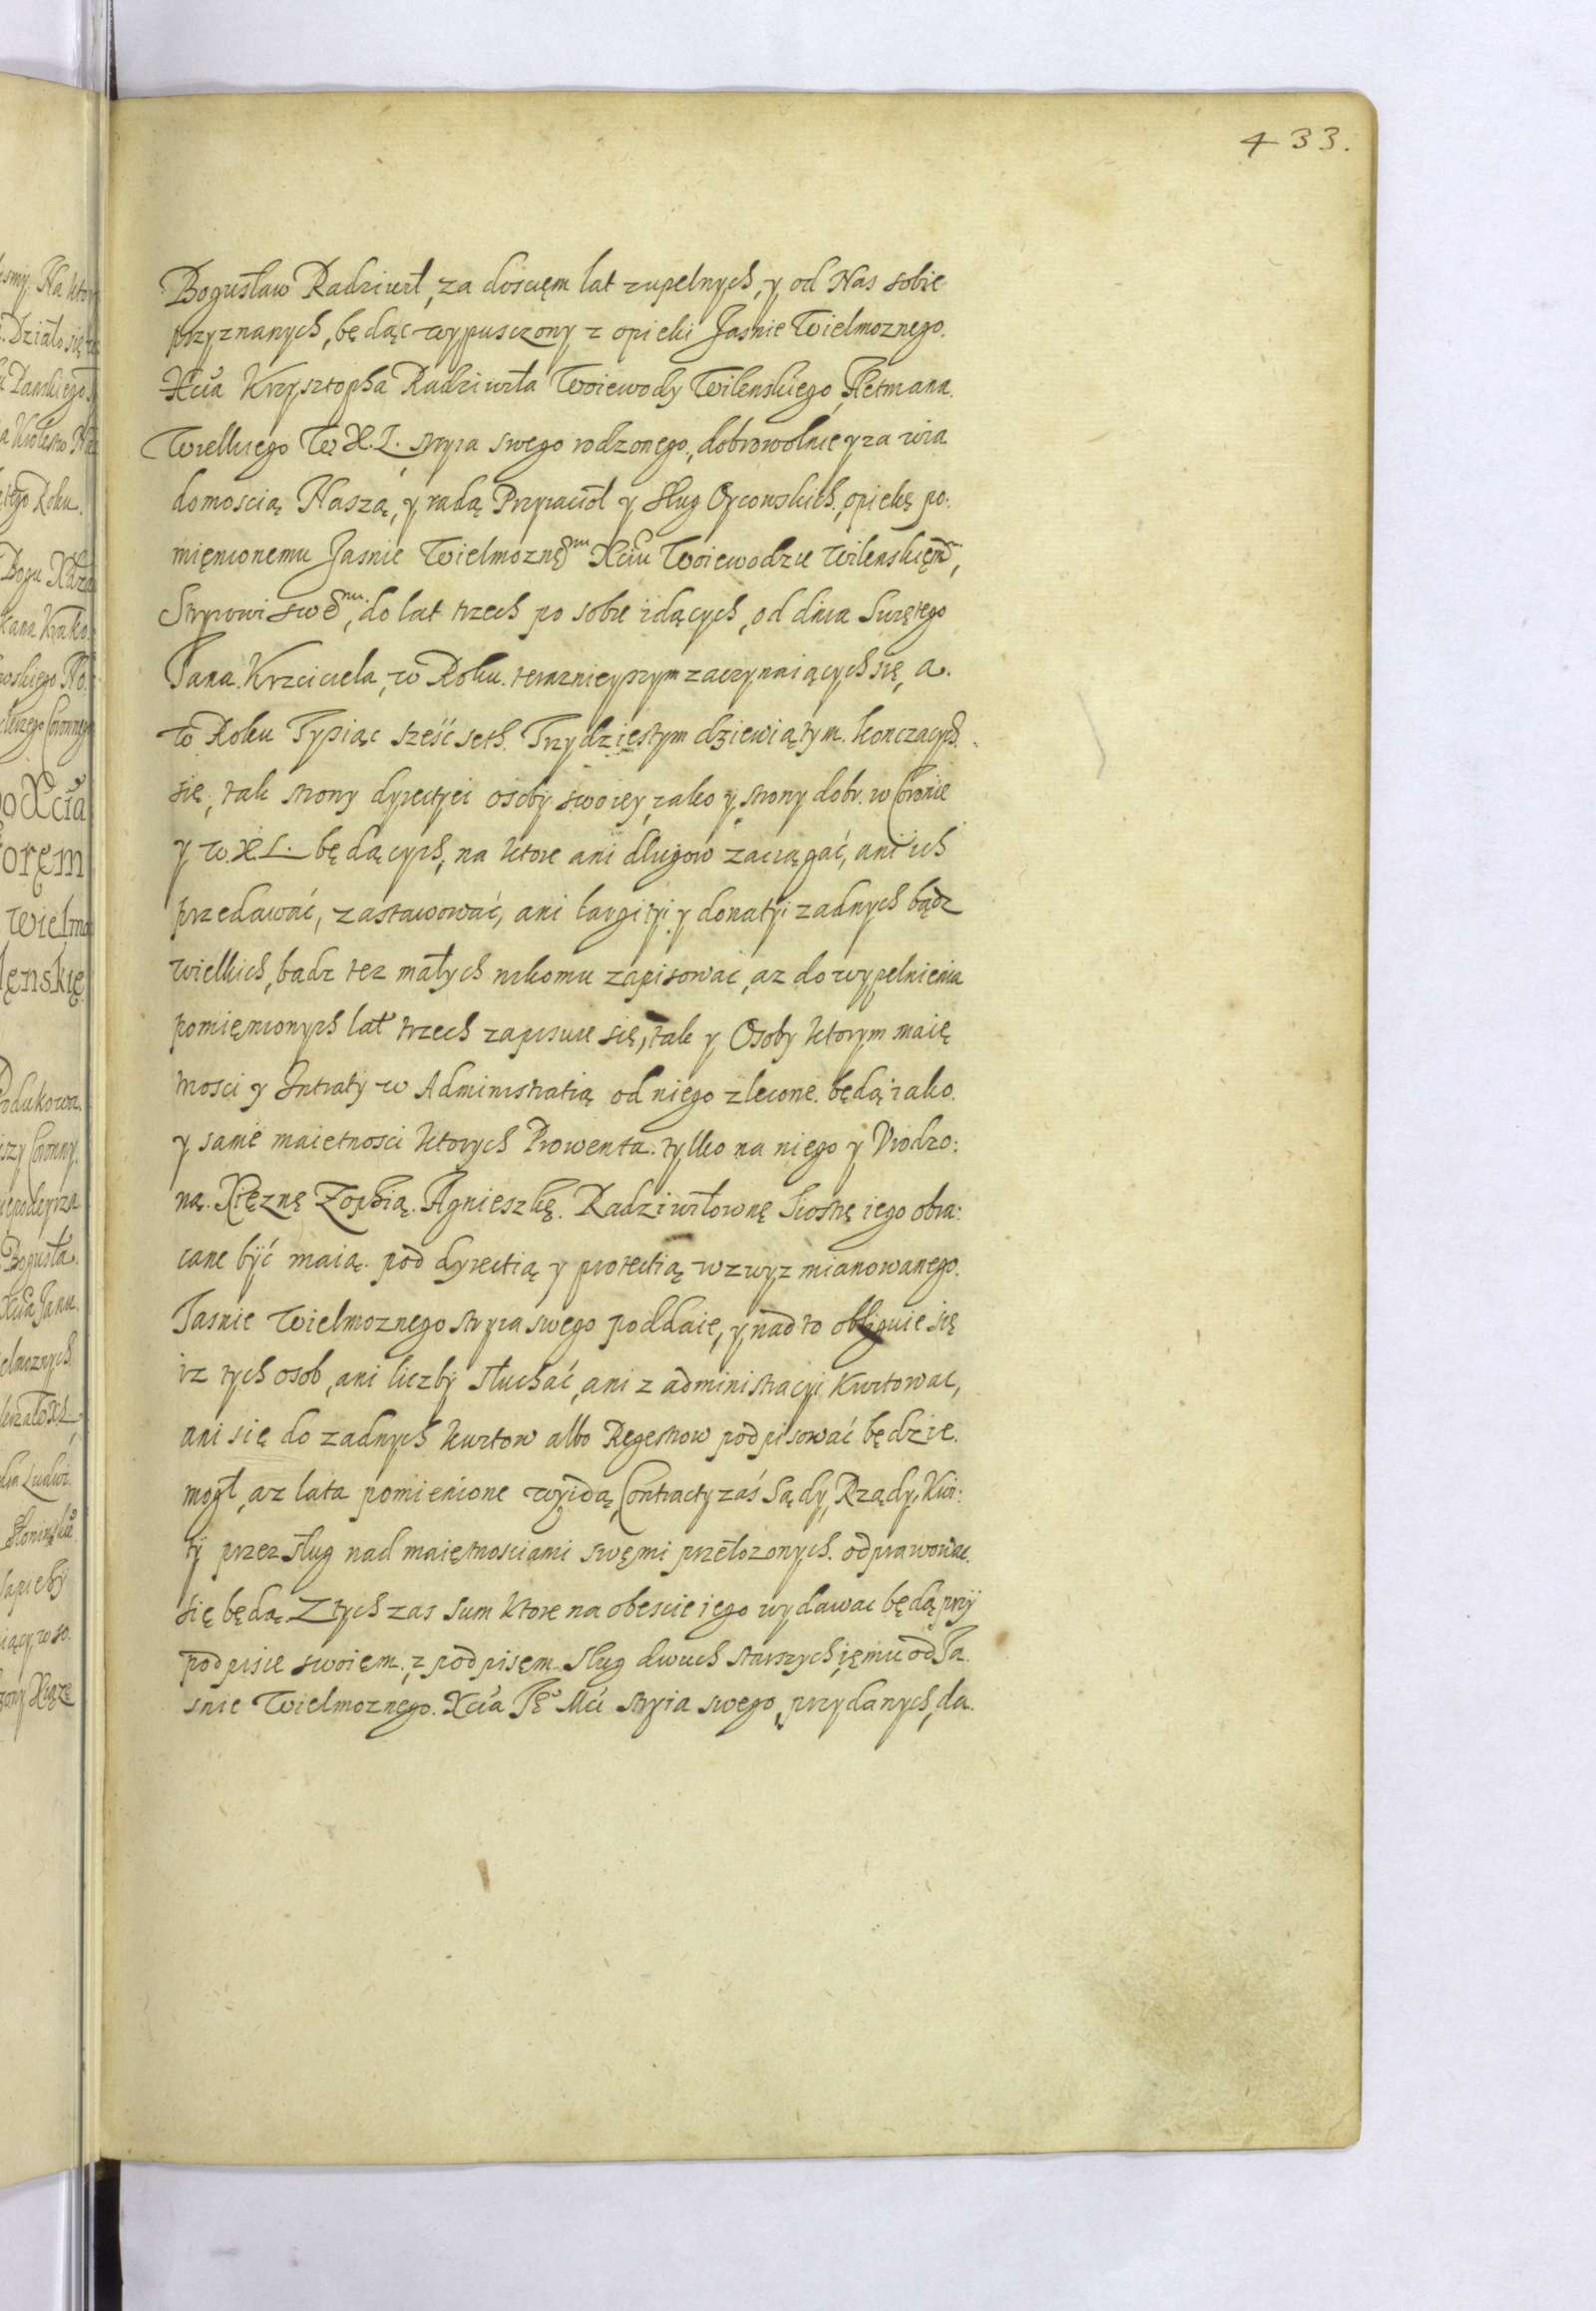 433.
Bogusław Radziwił, za doscięm lat zupelnych, y od Nas sobie
przyznanych, będąc wypusczony z opieki Jasnie Wielmoznego.
Xcia Krzysztopha Radziwiła Woiewody Wilenskiego, Hetmana.
Wielkiego W. X. L. stryia swego rodzonego, dobrowolnie y za wia
domoscią Naszą, y radą Przyiacioł y sług Oycowskich, opiekę po:
mięnionemu Jasnie Wielmozneᵐᵘ Xciu Woiewodzie Wilenskięᵐ,
Stryiowi sweᵐᵘ, do lat trzech po sobie idących, od dnia Swiętego
Jana Krzciciela, w Roku teraznieyszym zaczynaiących się, a.
w Roku Tysiąc sześć seth. Trzydziestym dziewiątym. konczących.
się, tak strony dyrectyei osoby swoiey, iako y strony dobr. w Coronie
y w X. L. będących, na ktore ani długow zaciągać, ani ich
przedawać, zastawować, ani largityi y donatyi zadnych bądz
wielkich, badz tez małych nikomu zapisować, az do wypełnienia
pomięnionych lat trzech zapisuie się, tak y Osoby ktorym maię
tnosci y Intraty w Administratią od niego zlecone. będą iako.
y same maietnosci ktorych Prowenta. tylko na niego y Vrodzo:
ną. Xiężnę Zophią. Agnieszkę. Radziwiłownę Siostrę iego obra:
cane być maią. pod dyrectią y protectią wzwyz mianowanego.
Jasnie Wielmoznego stryia swego poddaie, y nad to obliguie się
iz tych osob, ani liczby słuchać, ani z administracyi kwitowac,
ani się do zadnych kwitow albo Regestrow podpisować będzie.
mogł, az lata pomienione wyidą, Contracty zaś Sądy, Rządy, Kwi:
ty przez sług nad maiętnosciami swęmi przełozonych. odprawowac.
się będą. Z tych zas sum ktore na obescie iego wydawac będą przy
podpisie swoięm. z podpisęm sług dwuch starszych ięmu od Ja.
snie Wielmoznego. Xcia Jᵒ Mci stryia swego, przydanych, da.